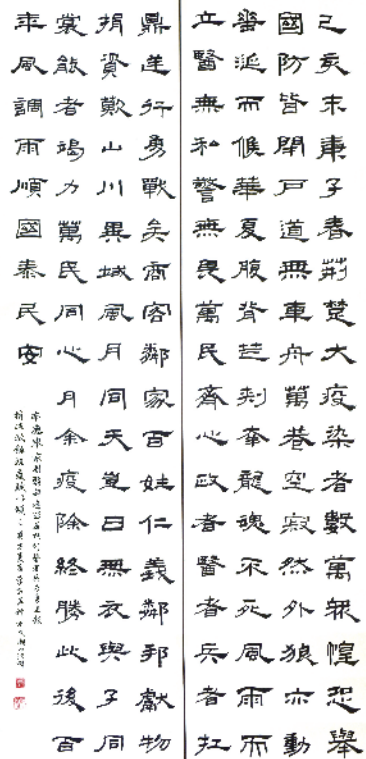 己亥末庚子春荊楚大疫染者數萬眾惶恐舉
國防皆閉戶道無車舟萬巷空寂然外狼亦動
番涎而候華夏腹背芒刺幸龍魂不死風雨而
立醫無私警無畏萬民齊心政者醫者兵者扛
鼎逆行勇戰矣商客鄰家百姓仁義鄰邦獻物
捐資歎山川異域風月同天豈曰無衣與子同
裳能者竭力萬民同心月余疫除終勝此後百
年風調雨順國泰民安